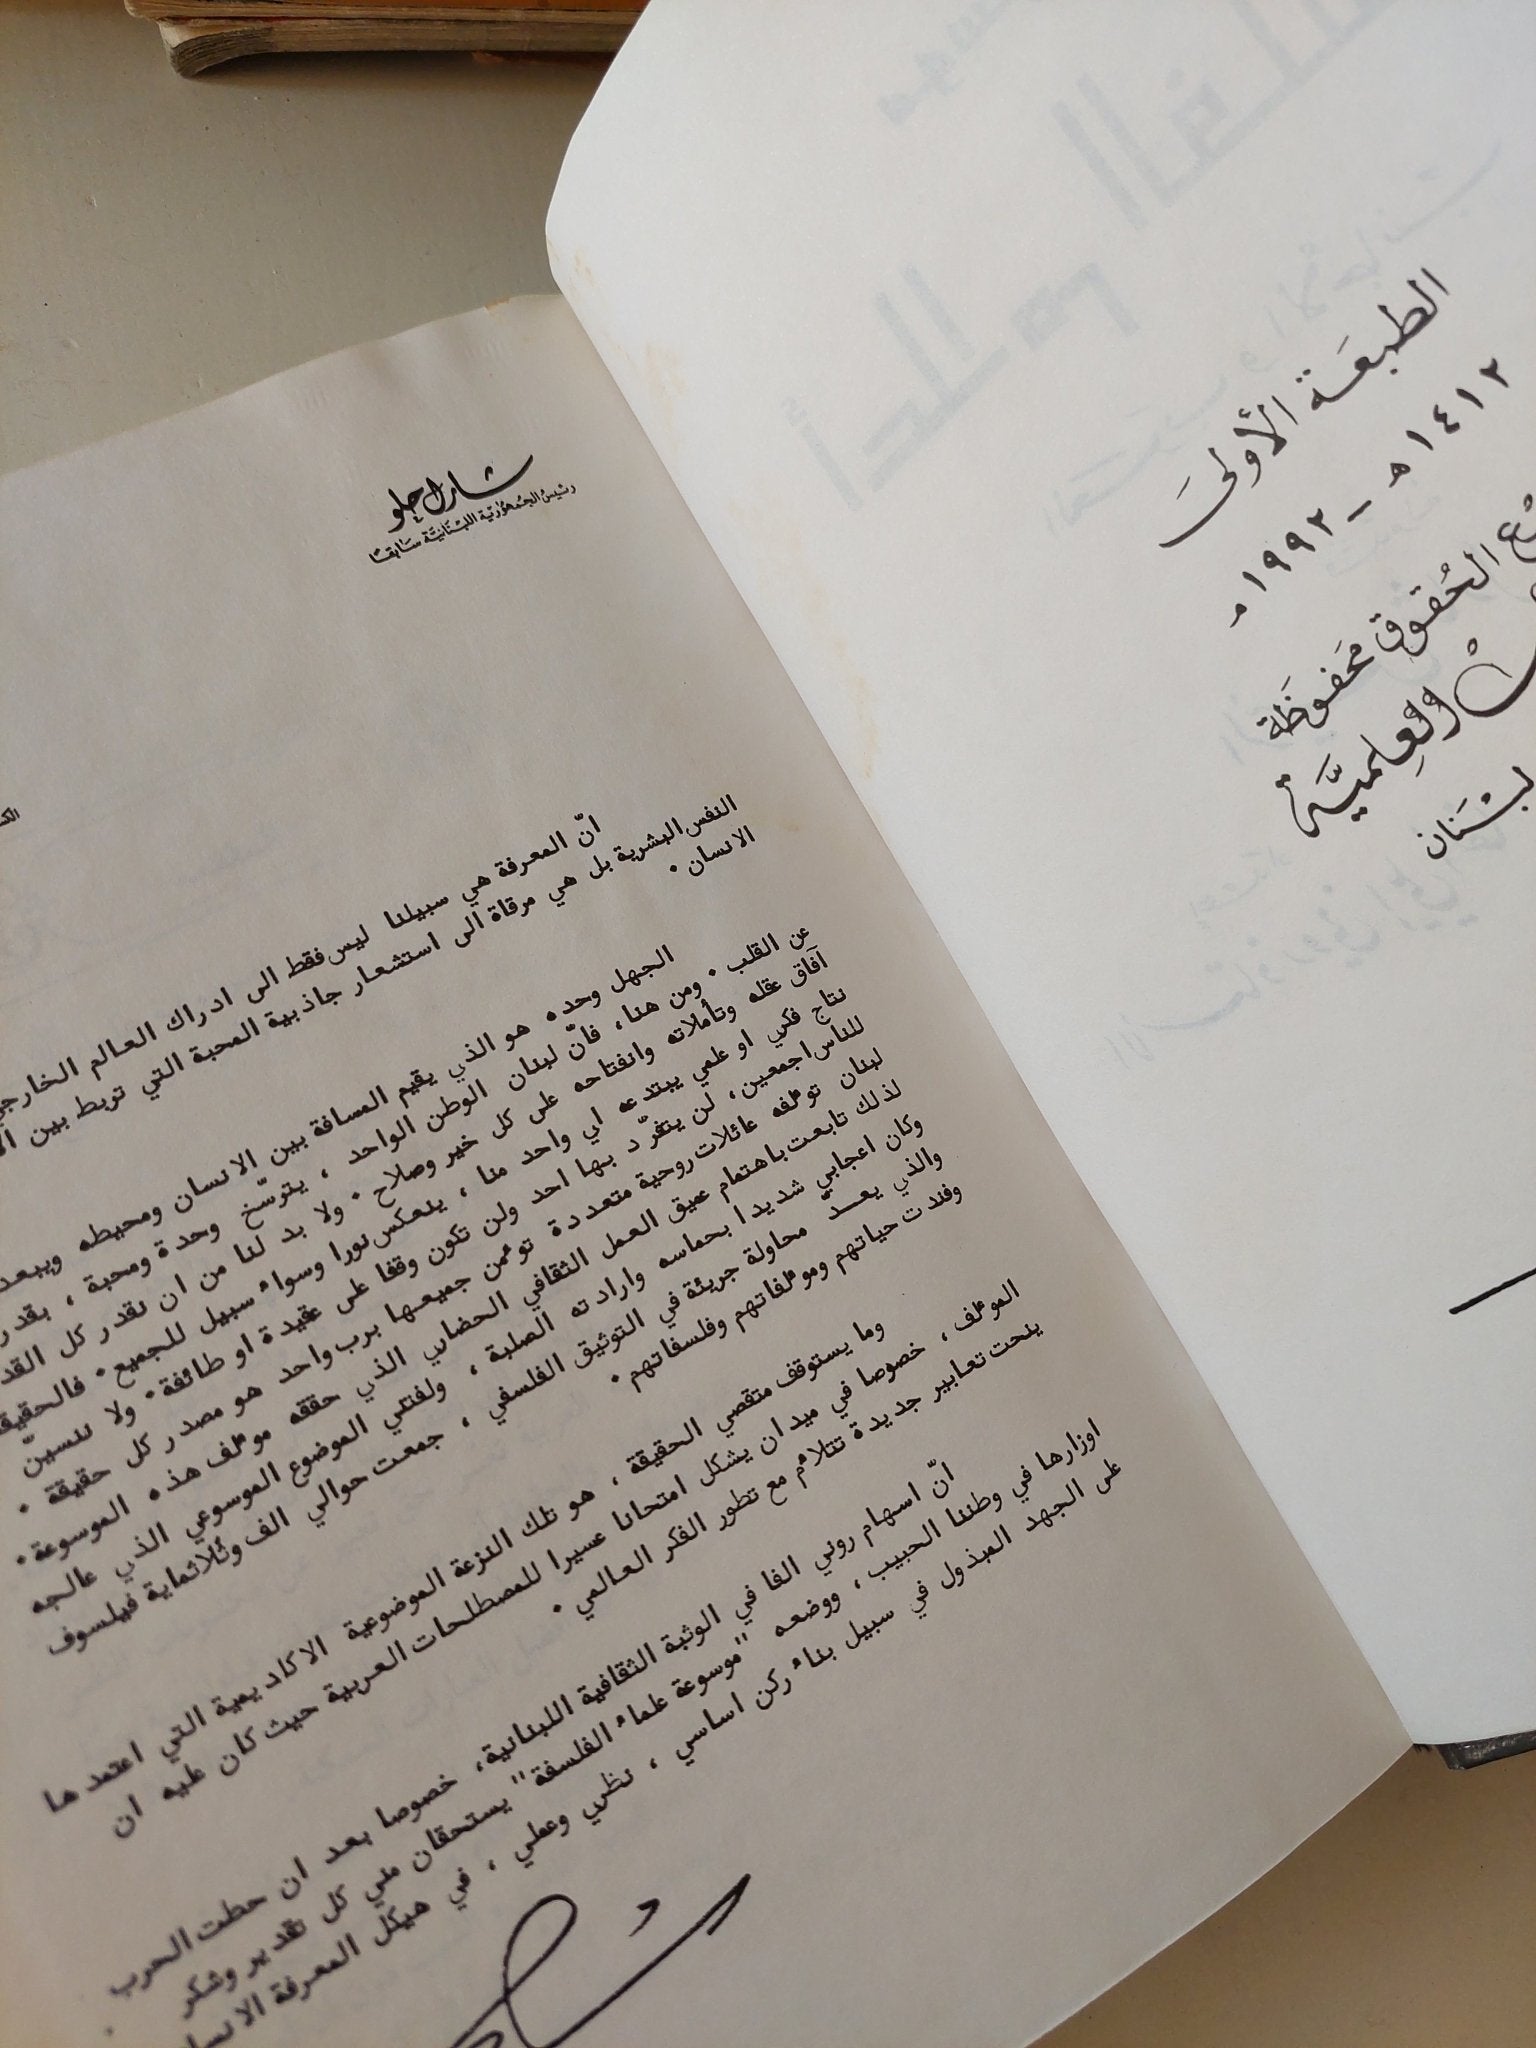 الطبعَة الأولىَ
١٤١٢ هـ - ١٩٩٢ مـ
الحُقوق محَفوظَة
والعِلميَّة
لبْنَان
شارل حلو
رئيسُ الجُمهُوريّة اللبْنَانيَّة سَابقًا
انّ المعرفة هي سبيلنا ليس فقط الى ادراك العالم الخارجي
النفس البشرية بل هي مرقاة الى استشعار جاذبية المحبة التي تربط بين
الانسان .
الجهل وحده هو الذي يقيم المسافة بين الانسان ومحيطه ويبعد
عن القلب . ومن هنا، فانّ لبنان الوطن الواحد ، يترسّخ وحدة ومحبة ، بقدر
آفاق عقله وتأملاته وانفتاحه على كل خير وصلاح . ولا بد لنا من ان نقدر كل القد
نتاج فكري او علمي يبتدعه اي واحد منا ، ينعكس نورا وسواء سبيل للجميع . فالحقيقة
للناس اجمعين، لن يتفرّد بها احد ولن تكون وقفا على عقيدة او طائفة . ولا ننسينّ
لبنان تؤلفه عائلات روحية متعددة تؤمن جميعها برب واحد هو مصدر كل حقيقة .
لذلك تابعت باهتمام عميق العمل الثقافي الحضاري الذي حققه مؤلف هذه الموسوعة .
وكان اعجابي شديدا بحماسه وارادته الصلبة ، ولفتني الموضوع الموسوعي الذي عالجه
والذي يعدّ محاولة جريئة في التوثيق الفلسفي ، جمعت حوالي الف وثلاثماية فيلسوف
وفندت حياتهم ومؤلفاتهم وفلسفاتهم .
وما يستوقف متقصي الحقيقة ، هو تلك النزعة الموضوعية الاكاديمية التي اعتمدها
المؤلف ، خصوصا في ميدان يشكل امتحانا عسيرا للمصطلحات العربية حيث كان عليه ان
ينحت تعابير جديدة تتلاءم مع تطور الفكر العالمي .
انّ اسهام روني الفا في الوثبة الثقافية اللبنانية، خصوصا بعد ان حطت الحرب
اوزارها في وطننا الحبيب ، ووضعه "موسوعة علماء الفلسفة" يستحقان مني كل تقدير وشكر
على الجهد المبذول في سبيل بناء ركن اساسي ، نظري وعملي ، في هيكل المعرفة